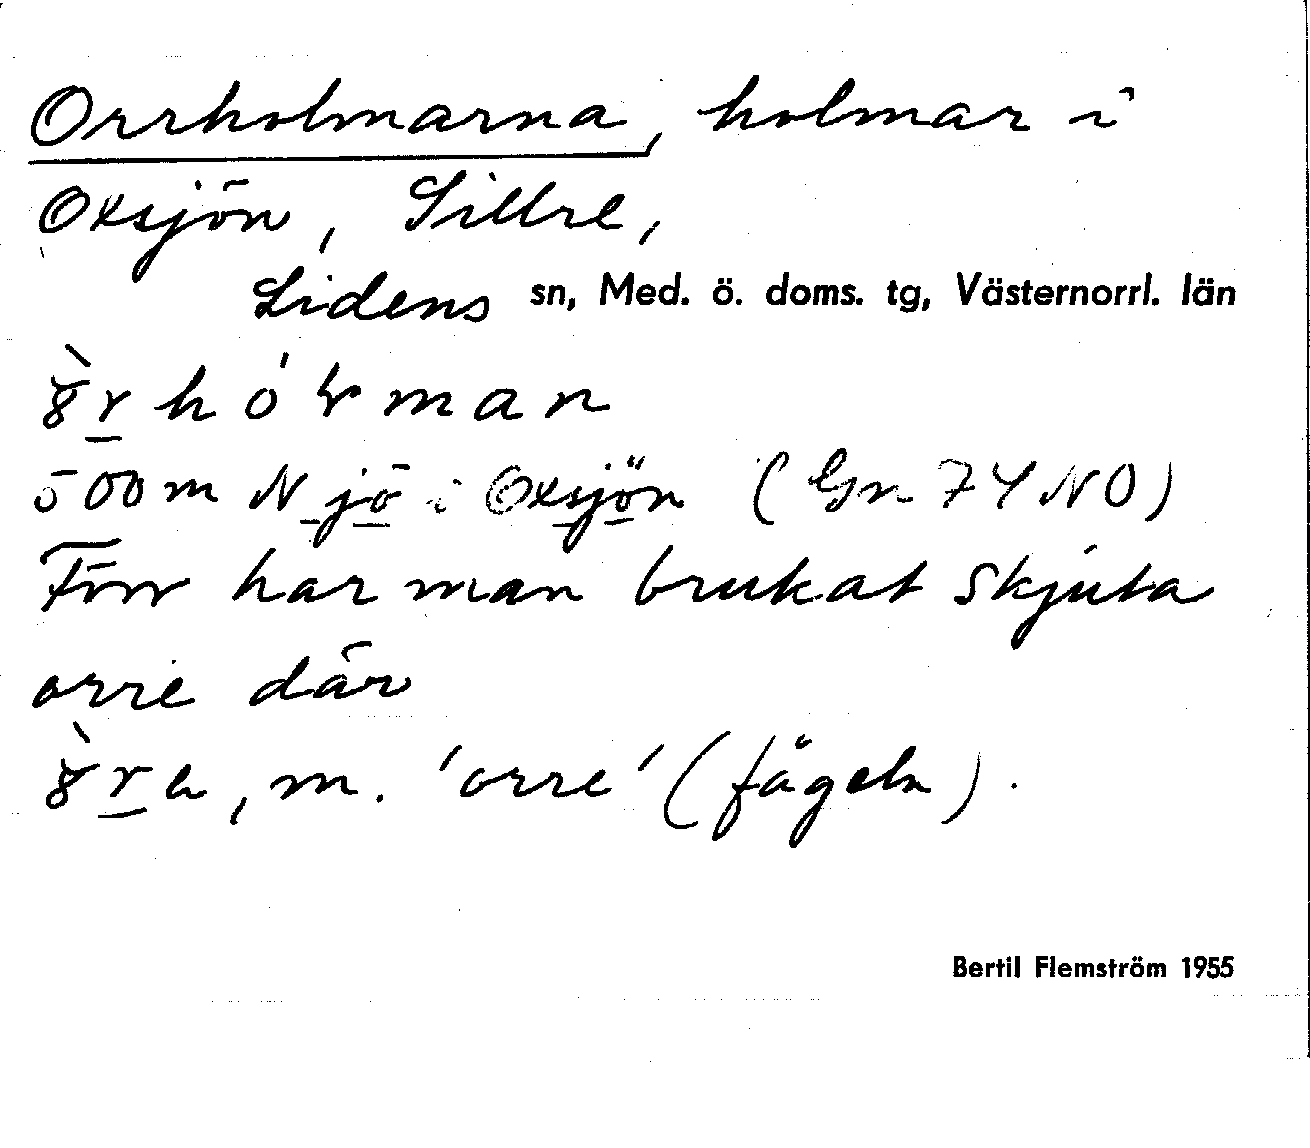 Orrholmarna, holmar i
Oxsjön, Sillre,
Lidens sn, Med. ö. doms. tg, Västernorrl. län
500 m N jö i Oxsjön (Gn 74 NO)
Förr har man brukat skjuta
orre där
m. 'orre' (fågeln).
Bertil Flemström 1955